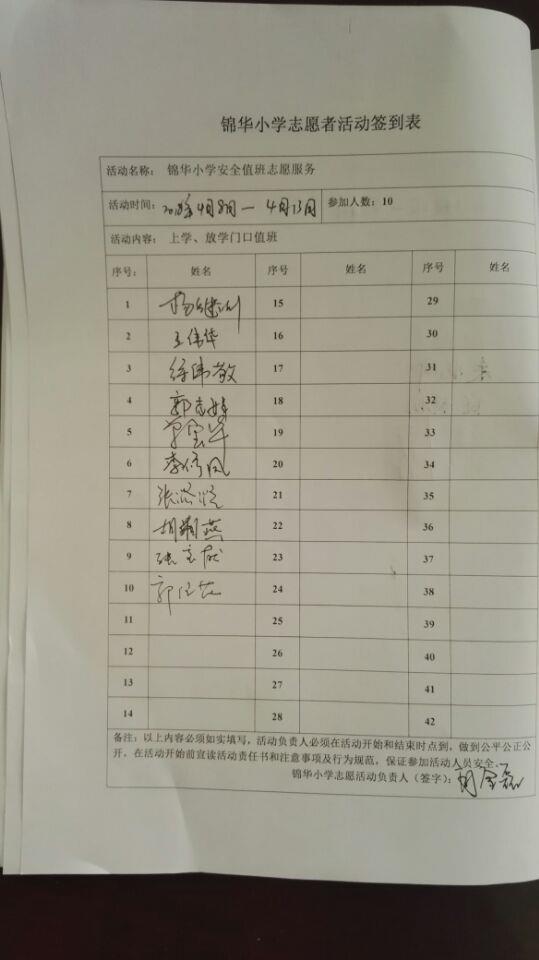 锦华小学志愿者活动签到表
活动名称: 锦华小学安全值班志愿服务
活动时间: 4月8日—4月13日 参加人数: 10
活动内容: 上学、放学门口值班
序号: 姓名 序号 姓名 序号 姓名
1 15 29
2 王伟华 16 30
3 徐伟敬 17 31
4 18 32
5 19 33
6 李修凤 20 34
7 21 35
8 22 36
9 23 37
10 24 38
11 25 39
12 26 40
13 27 41
14 28 42
备注: 以上内容必须如实填写, 活动负责人必须在活动开始和结束时点到, 做到公平公正公
开, 在活动开始前宣读活动责任书和注意事项及行为规范, 保证参加活动人员安全.
锦华小学志愿活动负责人 (签字):